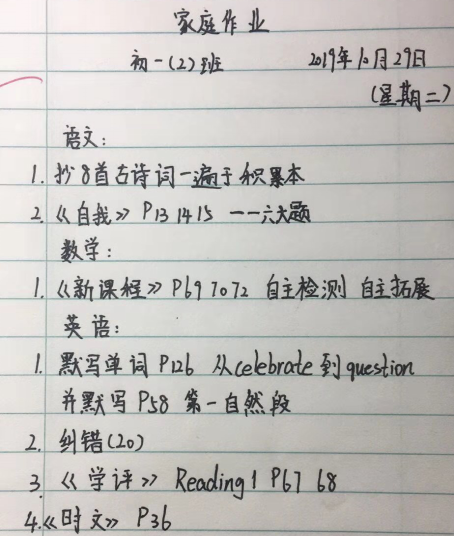 家庭作业
初一(2)班 2019年10月29日
(星期二)
语文:
1. 抄8首古诗词一遍于积累本
2. 《自我》 P13 14 15 一一六大题
数学:
1. 《新课程》 P69 70 72 自主检测 自主拓展
英语:
1. 默写单词 P126 从celebrate到question
并默写 P58 第一自然段
2. 纠错(20)
3. 《学评》 Reading 1 P67 68
4.《时文》 P36